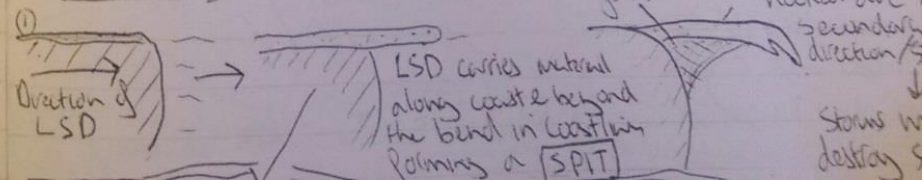 ①
Direction of
LSD
LSD carries material
along coast & beyond
the bend in coastline
forming a SPIT
secondary
direction/
Storms
destroy